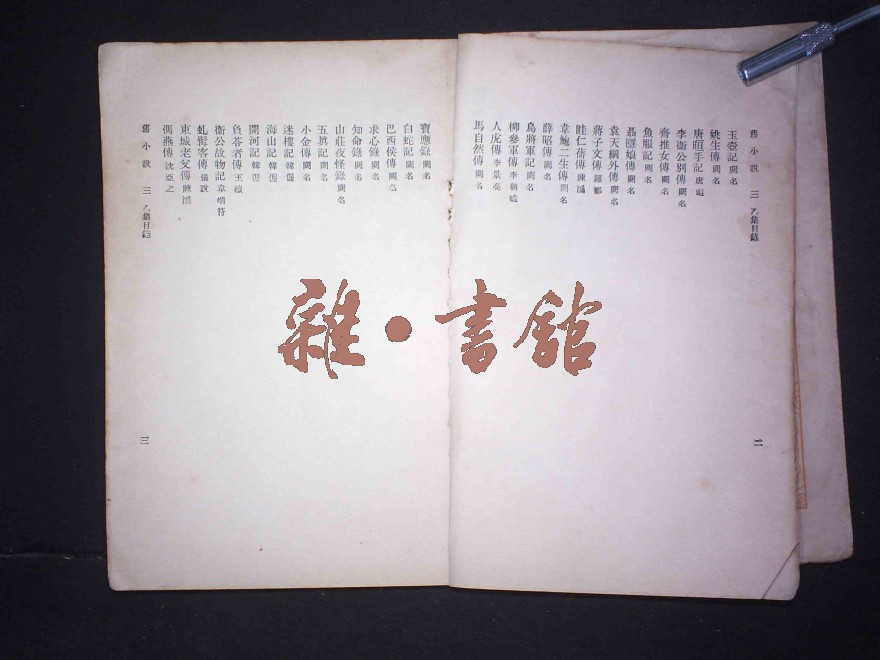 舊小說 三 乙集目錄
玉壺記 闕名
姚生傳 闕名
唐晅手記 唐晅
李衛公別傳 闕名
齊推女傳 闕名
魚服記 闕名
聶隱娘傳 闕名
袁天綱外傳 闕名
蔣子文傳 羅鄴
睦仁蒨傳 陳鴻
韋鮑二生傳 闕名
薛昭傳 闕名
烏將軍記 闕名
柳參軍傳 李朝威
人虎傳 李景亮
馬自然傳 闕名
二
寶應錄 闕名
白蛇記 闕名
巴西侯傳 闕名
求心錄 闕名
知命錄 闕名
山莊夜怪錄 闕名
五真記 闕名
小金傳 闕名
迷樓記 韓偓
海山記 韓偓
開河記 韓偓
負苓者傳 王績
衛公故物記 韋端符
虬髯客傳 張說
東城老父傳 陳鴻
馮燕傳 沈亞之
舊小說 三 乙集目錄
三
雜·書館